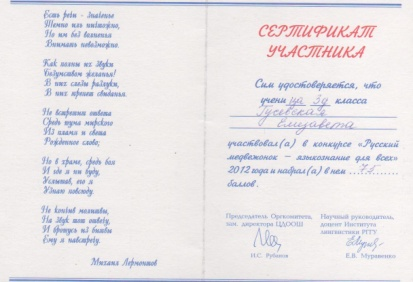 Есть речи – значенье
Темно иль ничтожно,
Но им без волненья
Внимать невозможно.
Как полны их звуки
Безумством желанья!
В них слезы разлуки,
В них трепет свиданья.
Не встретит ответа
Средь шума мирского
Из пламя и света
Рожденное слово;
Но в храме, средь боя
И где я ни буду,
Услышав, его я
Узнаю повсюду.
Не кончив молитвы,
На звук тот отвечу,
И брошусь из битвы
Ему я навстречу.
Михаил Лермонтов
СЕРТИФИКАТ
УЧАСТНИКА
Сим удостоверяется, что
учени ца 3д класса
Гусевская
Елизавета
участвовал(а) в конкурсе «Русский
медвежонок – языкознание для всех»
2012 года и набрал(а) в нем 75
баллов.
Председатель Оргкомитета,
зам. директора ЦДООШ
Н.С. Рубанов
Научный руководитель,
доцент Института
лингвистики РГГУ
Е.В. Муравенко